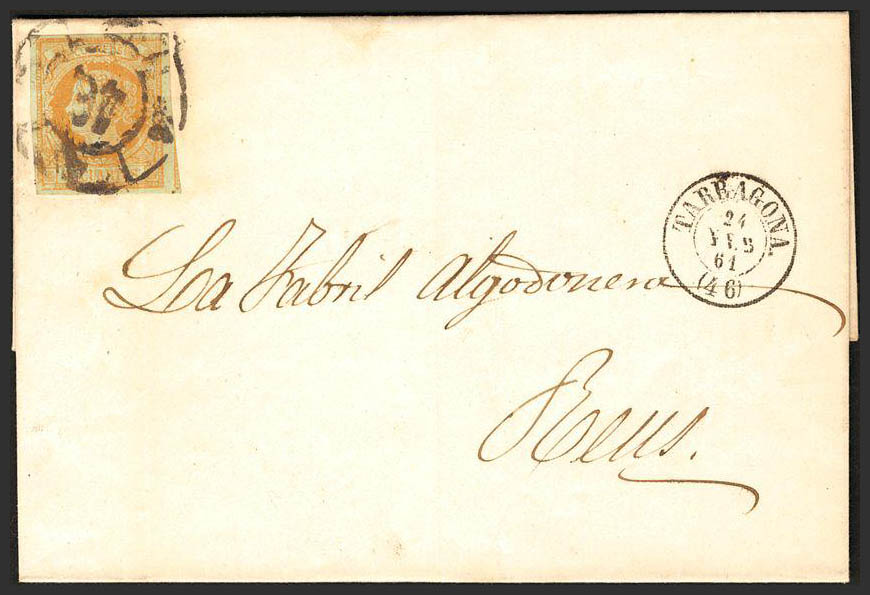 TARRAGONA
24
FEB
61
(46)
La Fabril Algodonera
Reus.